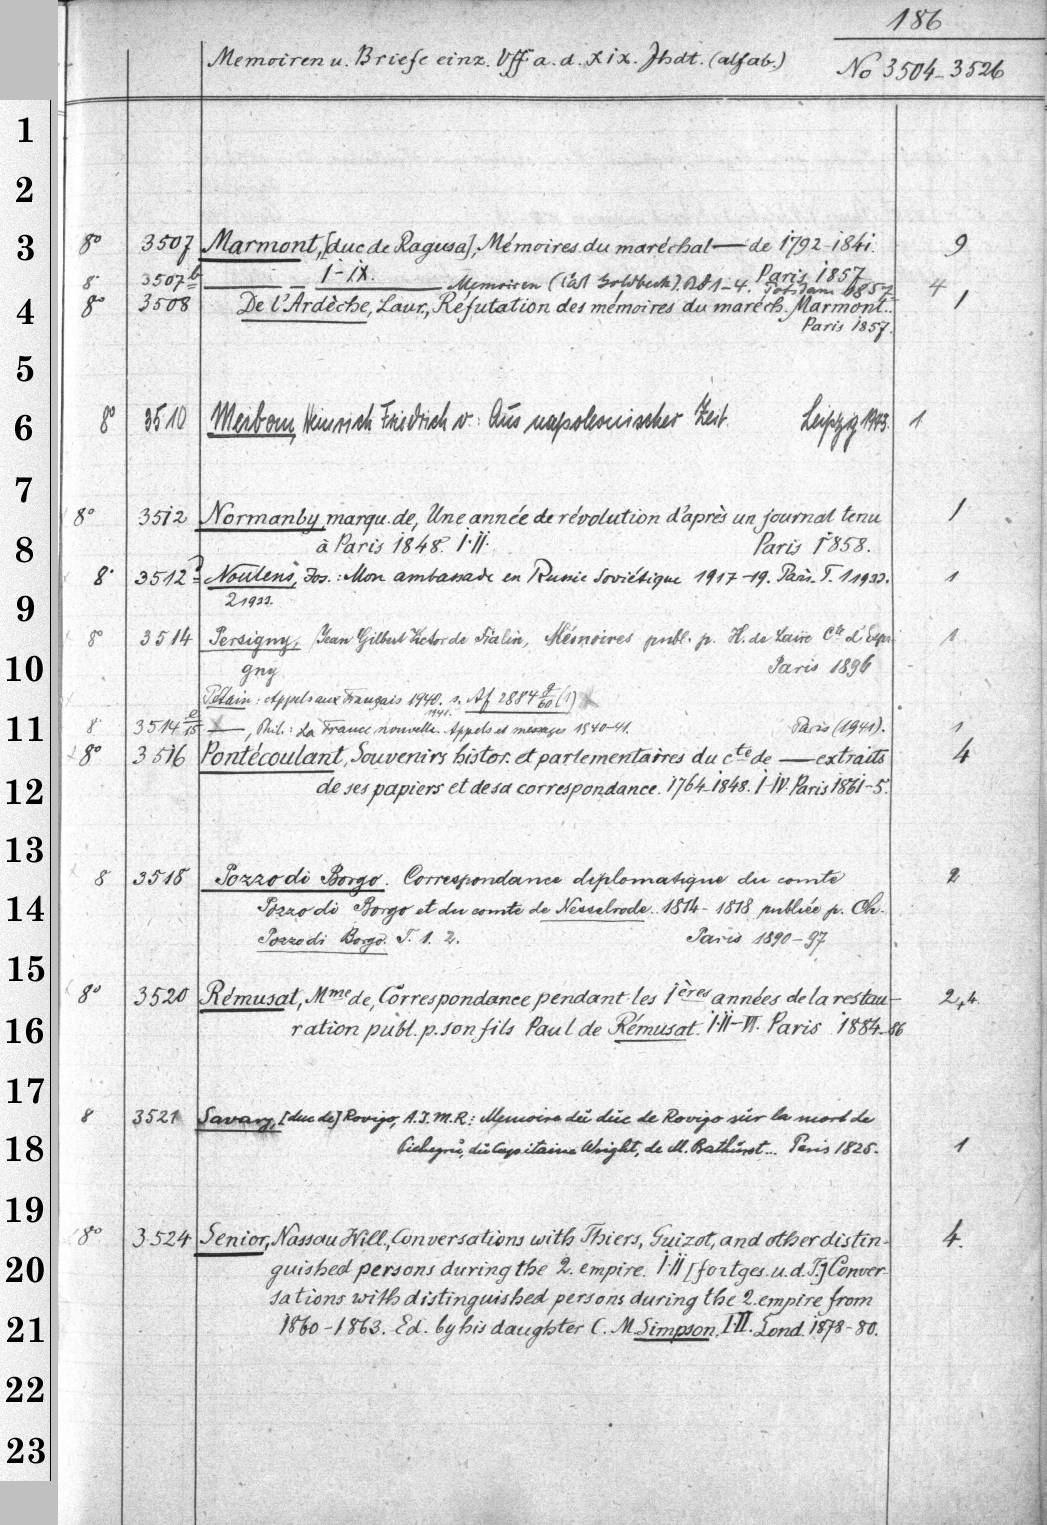 186
Memoiren u. Briefe einz. Vff a. d. XIX. Jhdt. (alfab.)
No 3504-3526
1
2
3
8° 3507 Marmont, [duc de Ragusa], Mémoires du maréchal — de 1792-1841. 9
I-IX. Paris 1857
8° 3507b — — — Memoiren (Carl Goldbeck). Bd 1-4. Potsdam 1857 4
4
8° 3508 De l'Ardèche, Laur., Réfutation des mémoires du maréch. Marmont. 1
Paris 1857.
5
6
8° 3510 Meibom, Heinrich Friedrich v.: Aus napoleonischer Zeit. Leipzig 1943. 1
7
8° 3512 Normanby, marqu. de, Une année de révolution d'après un journal tenu 1
8
à Paris 1848. I.II. Paris 1858.
8° 3512 Noulens, Jos.: Mon ambassade en Russie Soviétique 1917-19. Paris. T. 1 1933. 1
9
2 1933.
8° 3514 Persigny, Jean Gilbert Victor de Fialin, Mémoires publ. p. H. de Laire Cte d'Espa- 1
10
gny Paris 1896
Pétain: Appels aux Français 1940. s. Af 2884 9/60 (1)
1941.
11
8° 3514 e/15 —, Phil.: La France nouvelle. Appels et messages 1940-41. Paris (1941). 1
8° 3516 Pontécoulant, Souvenirs histor. et parlementaires du cte de — extraits 4
12
de ses papiers et de sa correspondance. 1764-1848. I-IV. Paris 1861-5.
13
14
8 3518 Pozzo di Borgo. Correspondance diplomatique du comte 2
Pozzo di Borgo et du comte de Nesselrode. 1814-1818 publiée p. Ch.
Pozzo di Borgo. T. 1. 2. Paris 1890-97
15
8° 3520 Rémusat, Mme de, Correspondance pendant les 1ères années de la restau- 2,4
16
ration publ. p. son fils Paul de Rémusat. I.II-VI. Paris 1884-86
17
8 3521 Savary, [duc de] Rovigo, A.J.M.R.: Memoire du duc de Rovigo sur la mort de
18
Pichegru, du Capitaine Wright, de M. Bathurst... Paris 1825. 1
19
8° 3524 Senior, Nassau Will., Conversations with Thiers, Guizot, and other distin- 4.
20
guished persons during the 2. empire. I.II [fortges. u. d. T.] Conver-
sations with distinguished persons during the 2. empire from
21
1860-1863. Ed. by his daughter C. M. Simpson. I.II. Lond. 1878-80.
22
23